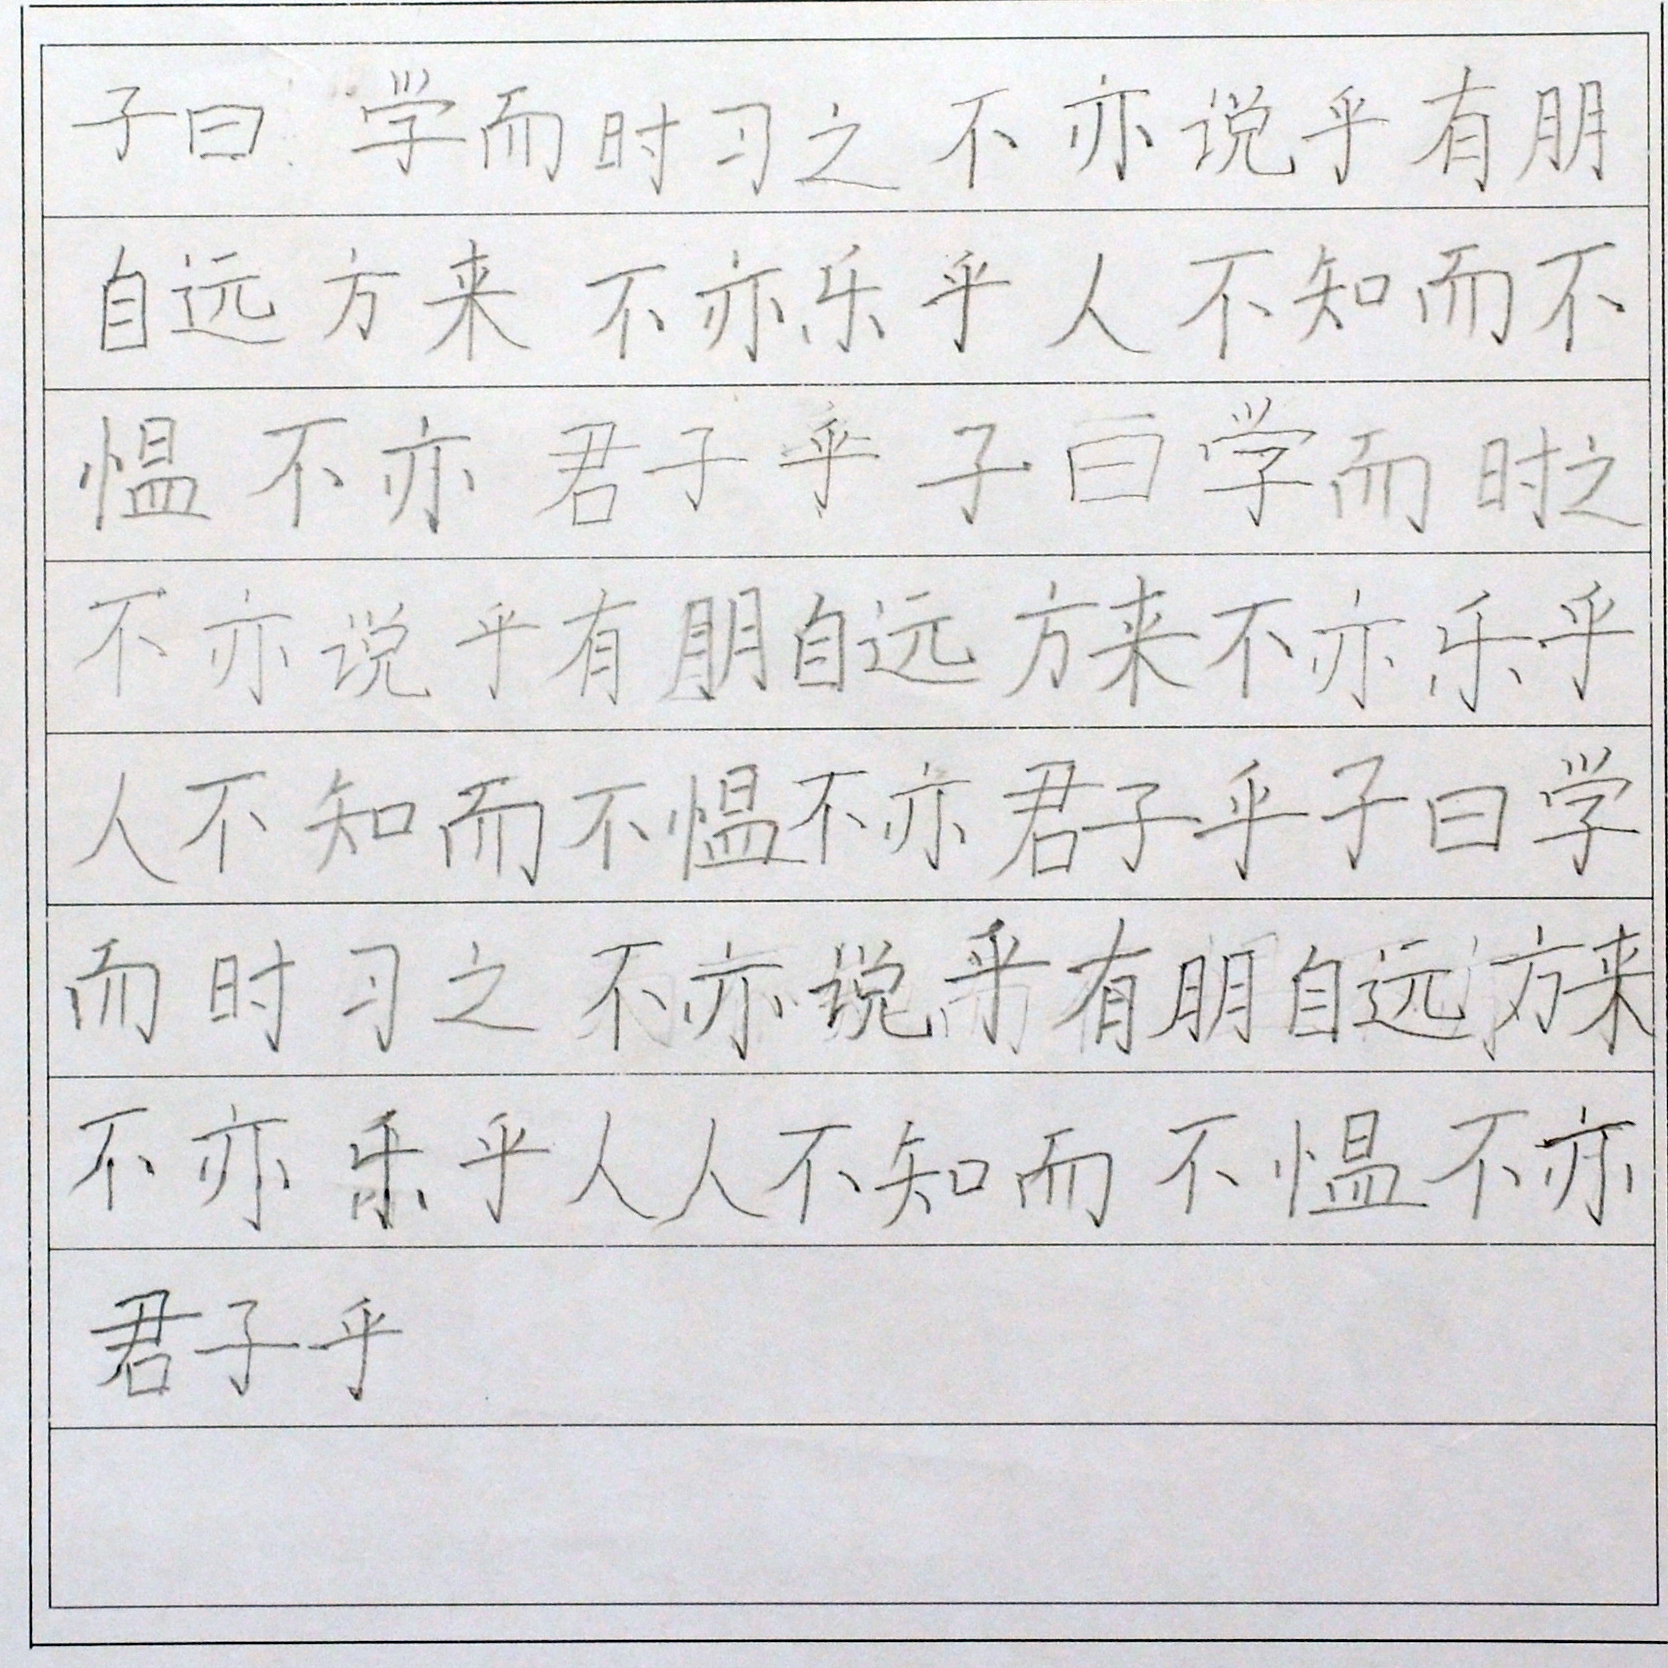 子曰学而时习之不亦说乎有朋
自远方来不亦乐乎人不知而不
愠不亦君子乎子曰学而时之
不亦说乎有朋自远方来不亦乐乎
人不知而不愠不亦君子乎子曰学
而时习之不亦说乎有朋自远方来
不亦乐乎人人不知而不愠不亦
君子乎